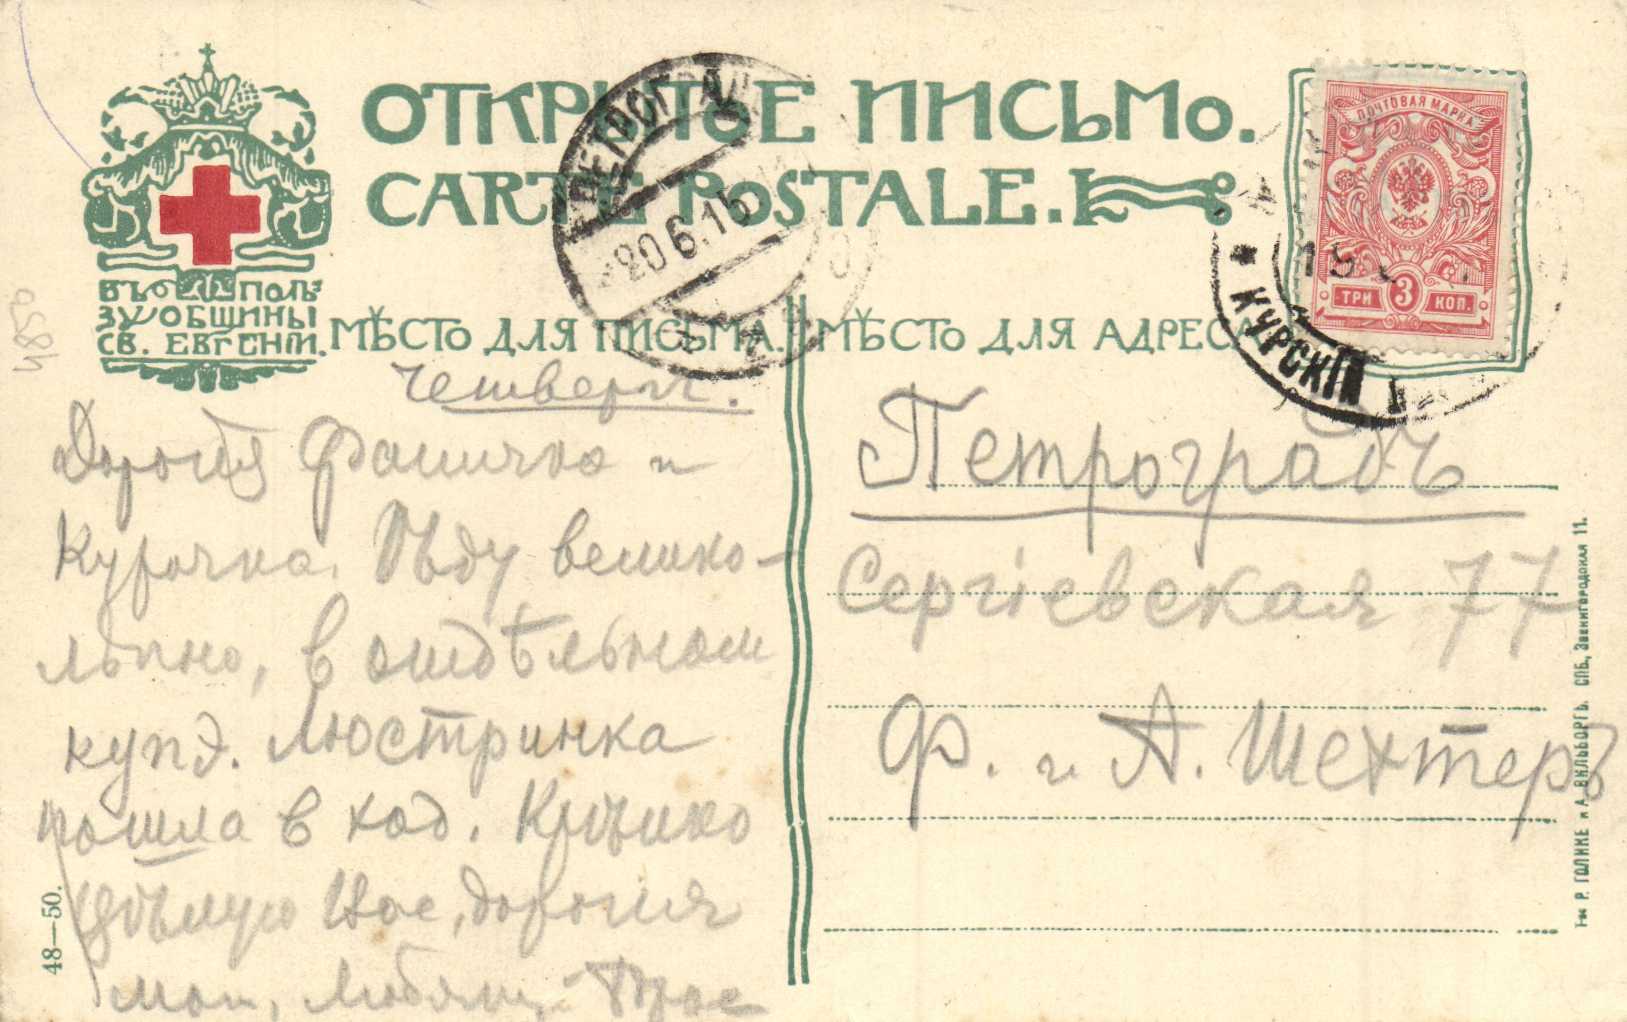 ОТКРЫТОЕ ПИСЬМО.
CARTE POSTALE.
ВЪ ПОЛЬ
ЗУ ОБЩИНЫ
СВ. ЕВГЕНІИ.
МѢСТО ДЛЯ ПИСЬМА.
МѢСТО ДЛЯ АДРЕСА
ПЕТРОГРАД
20.6.15
КУРСКІЙ
ПОЧТОВАЯ МАРКА
ТРИ 3 КОП.
4850
Четверг.
Дорогія Фаничка и
Курочка. Ѣду велико-
лѣпно, в отдѣльном
купэ. Люстринка
пошла в ход. Крѣпко
цѣлую Вас, дорогія
мои, Любящ
Петроградъ
Сергіевская 77
Ф. и А. Шехтеръ
48—50.
Т-во Р. ГОЛИКЕ и А. ВИЛЬБОРГЪ. СПБ., Звенигородская 11.